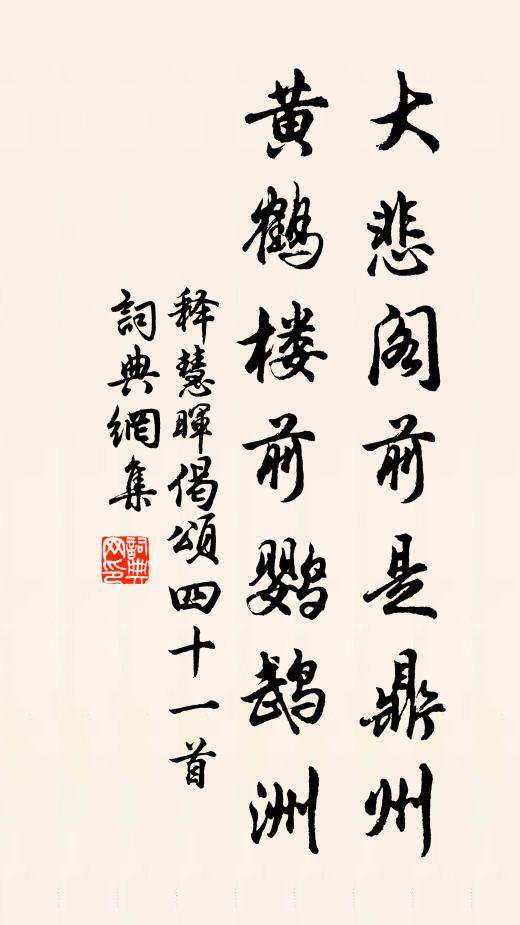 大悲阁前是鼎州
黄鹤楼前鹦鹉洲
释慧暉偈頌四十一首
詞典網集
詞典网印